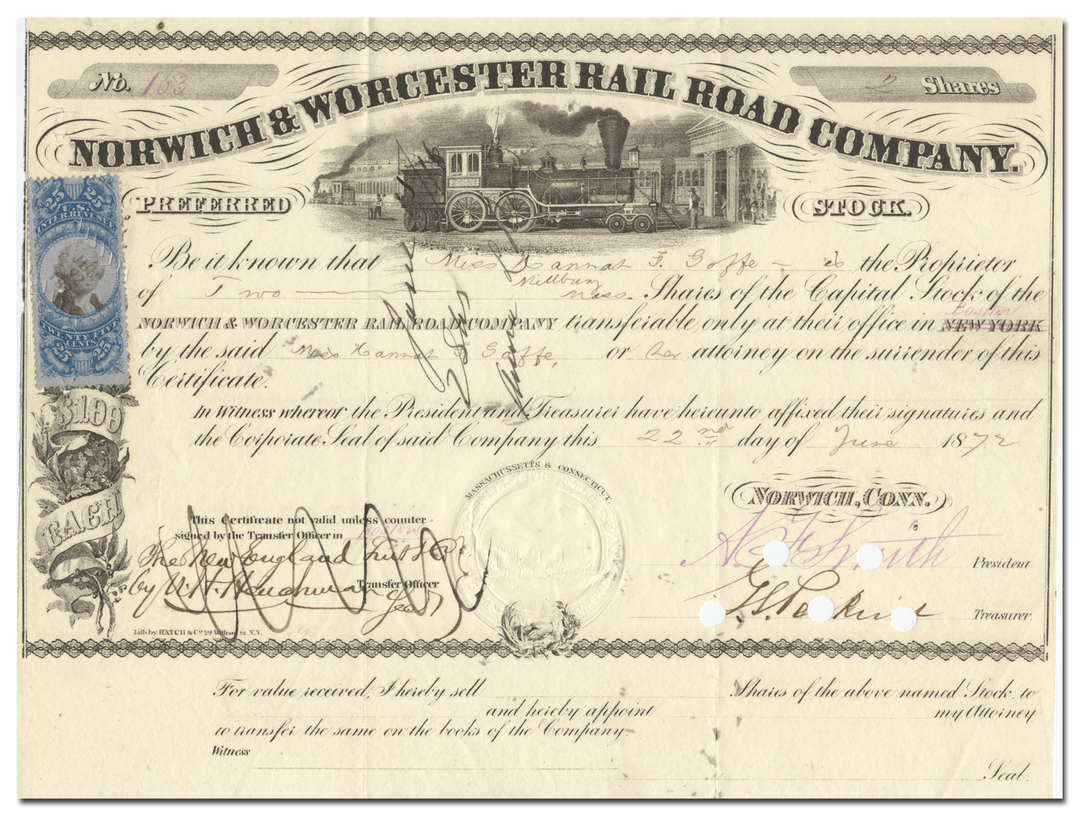 No. 163
2 Shares
NORWICH & WORCESTER RAIL ROAD COMPANY.
PREFERRED
STOCK.
25 25
U.S.
INTER. REVENUE
TWENTY FIVE
CENTS
Be it known that Miss Hannah F. Goffe is the Proprietor
Millbury
Mass.
of Two Shares of the Capital Stock of the
Boston
NORWICH & WORCESTER RAIL ROAD COMPANY transferable only at their office in NEW YORK
by the said Miss Hannah F Goffe, or her attorney on the surrender of this
Certificate.
In Witness whereof the President and Treasurer have hereunto affixed their signatures and
the Corporate Seal of said Company this 22nd day of June 1872
$100
EACH
MASSACHUSSETTS & CONNECTICUT.
NORWICH, CONN.
This Certificate not valid unless counter-
signed by the Transfer Officer in Boston
The New England Trust Co.
by Transfer Officer
A F Smith President
G L Perkins Treasurer.
Lith. by HATCH & Co. 29 William St. N.Y.
For value received, I hereby sell Shares of the above named Stock, to
and hereby appoint my Attorney
to transfer the same on the books of the Company.
Witness
Seal.